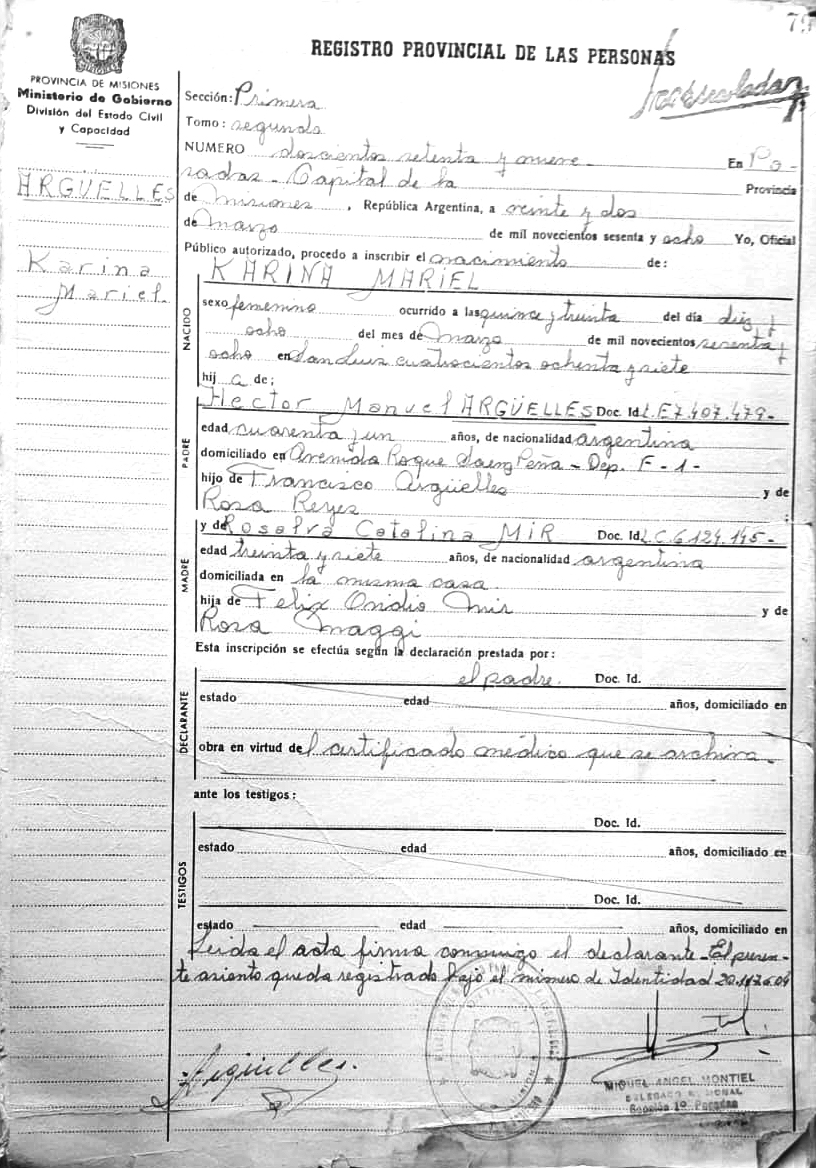 79
REGISTRO PROVINCIAL DE LAS PERSONAS
PROVINCIA DE MISIONES
Ministerio de Gobierno
División del Estado Civil
y Capacidad
ARGÜELLES
Karina
Mariel.
Sección: Primera
Tomo: segundo
NUMERO doscientos setenta y nueve - En Po-
sadas - Capital de la Provincia
de Misiones, República Argentina, a veinte y dos
de Marzo de mil novecientos sesenta y ocho Yo, Oficial
Público autorizado, procedo a inscribir el nacimiento de:
NACIDO
KARINA MARIEL
sexo femenino ocurrido a las quince y treinta del día diez y
ocho del mes de Marzo de mil novecientos sesenta y
ocho en San Luis cuatrocientos ochenta y siete
hij a de;
PADRE
Hector Manuel ARGÜELLES Doc. Id. L.E 7.407.479-
edad cuarenta y un años, de nacionalidad argentina
domiciliado en Avenida Roque Saenz Peña - Dep. F - 1 -
hijo de Francisco Argüelles y de
Rosa Reyes ;
MADRE
y de Rosalva Catalina MIR Doc. Id. L.C 6.124.145-
edad treinta y siete años, de nacionalidad argentina
domiciliada en la misma casa
hija de Felix Ovidio Mir y de
Rosa Maggi
Esta inscripción se efectúa según la declaración prestada por:
DECLARANTE
el padre. Doc. Id.
estado edad años, domiciliado en
obra en virtud de l certificado médico que se archiva -
ante los testigos:
TESTIGOS
Doc. Id.
estado edad años, domiciliado en
Doc. Id.
estado edad años, domiciliado en
Leida el acta firma conmigo el declarante - El presen-
te asiento queda registrado bajo el número de Identidad
Argüelles.
MIGUEL ANGEL MONTIEL
Sección 1º Posadas